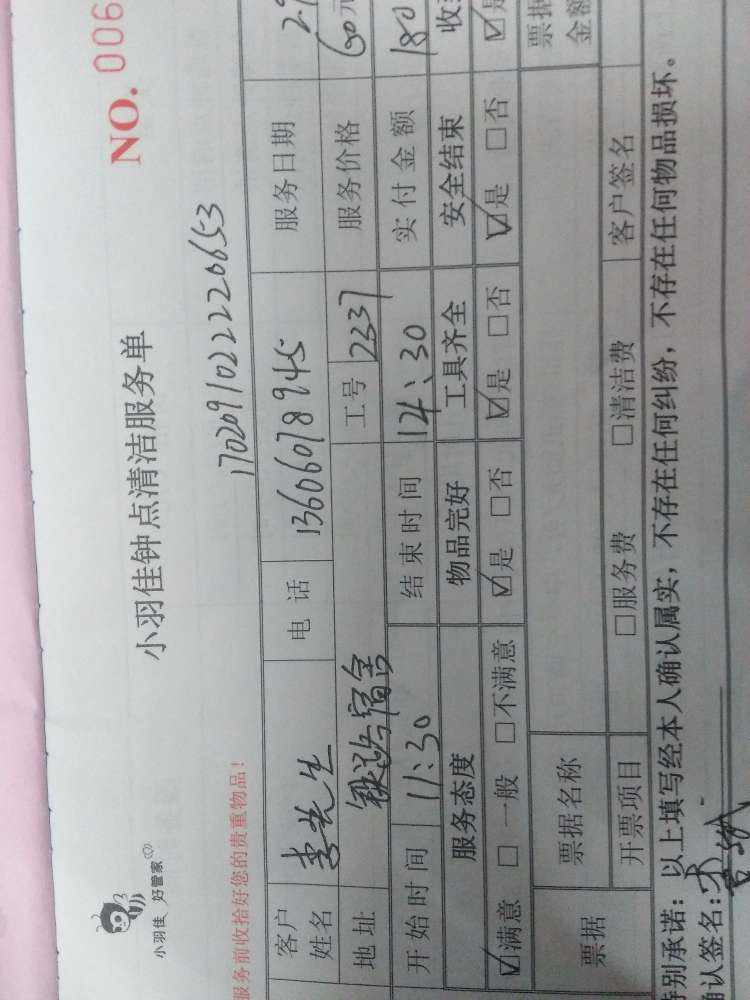 小羽佳 好管家
小羽佳钟点清洁服务单
NO. 006
17020910222220653
服务前收拾好您的贵重物品！
客户姓名 李先生 电话 13606078945 服务日期 29
地址 铁路宿舍 工号 2237 服务价格 60元
开始时间 11:30 结束时间 14:30 实付金额 180 收
服务态度 物品完好 工具齐全 安全结束
☑满意 □一般 □不满意 ☑是 □否 ☑是 □否 ☑是 □否 ☑是
票据 票据名称 票据金额
开票项目 □服务费 □清洁费 客户签名
特别承诺：以上填写经本人确认属实，不存在任何纠纷，不存在任何物品损坏。
确认签名：